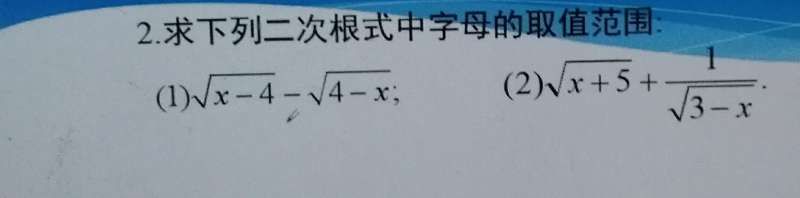 2.求下列二次根式中字母的取值范围:
(1)√(x-4) - √(4-x); (2)√(x+5) + 1/√(3-x).